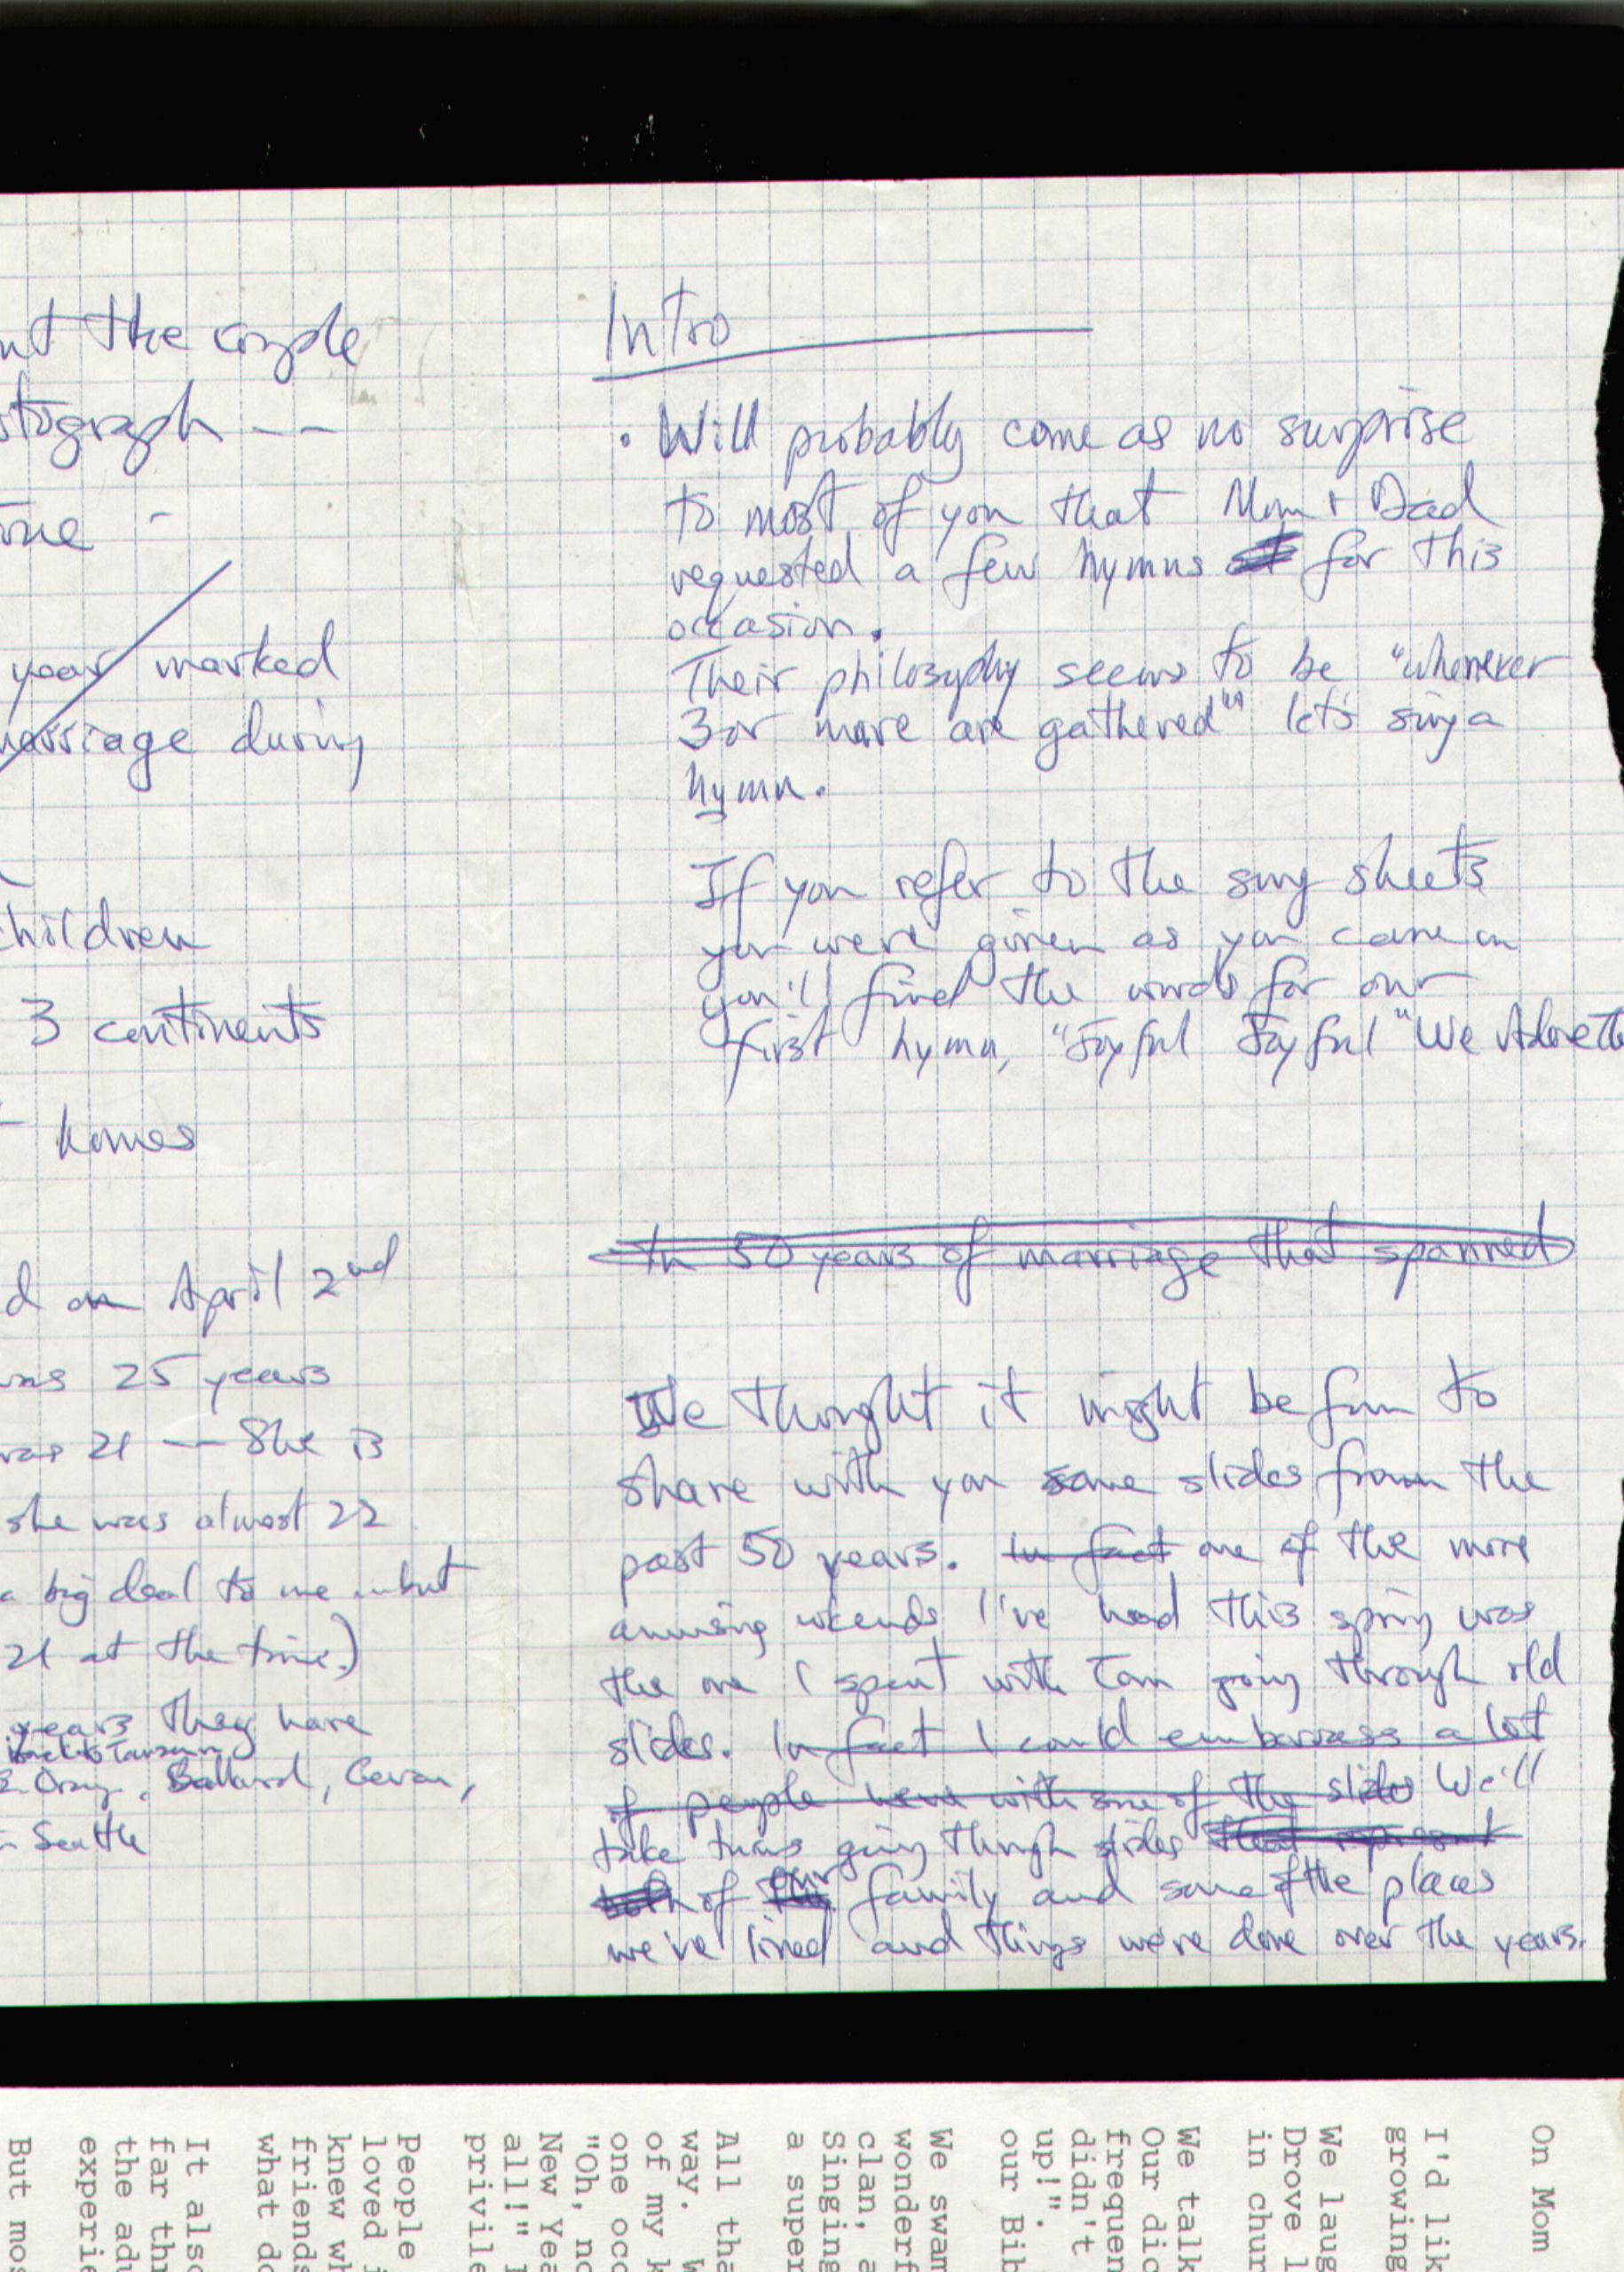 nt the couple
tograph --
one -
year marked
marriage during
children
3 continents
homes
d on April 2nd
was 25 years
was 21 — She is
she was almost 22
a big deal to me but
21 at the time.)
years they have
back to
Craig, Ballard, Gevan,
Seattle
Intro
• Will probably come as no surprise
to most of you that Mom + Dad
requested a few hymns for this
occasion.
Their philosophy seems to be "whenever
3 or more are gathered" let's sing a
hymn.
If you refer to the song sheets
you were given as you came in
you'll find the words for our
first hymn, "Joyful Joyful "We Adore Th
In 50 years of marriage that spanned
We thought it might be fun to
share with you some slides from the
past 50 years. In fact one of the more
amusing wkends I've had this spring was
the one I spent with Tom going through old
slides. In fact I could embarrass a lot
of people here with some of the slides We'll
take turns going through slides that represent
both of our family and some of the places
we've lived and things we've done over the years.
On Mom
I'd lik
growing
We laug
Drove l
in chur
We talk
Our dic
frequen
didn't
up!".
our Bib
We swam
wonderf
clan, a
Singing
a super
All tha
way. W
of my k
one occ
"Oh, no
New Yea
all!" I
privile
People
loved i
knew wh
friends
what do
It also
far thr
the adu
experie
But mos